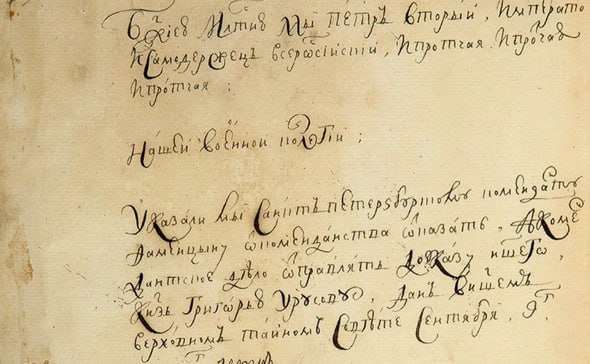 Бжиею Млтию Мы Петръ Вторый, Императо
и Самодержецъ всеросиїскїй, и протчая и протчая
и протчая:
Нашей военной колегїи;
Указали мы Санктъ петерзбурскому коменданту
Фаминцыну ѿ комендантства ѿказать, а коме
дантское дѣло ѿправлять до указу ншего,
Кнзь Григорью Урусову, Данъ в ншемъ
верховномъ тайномъ Совѣте Сентября, 9г